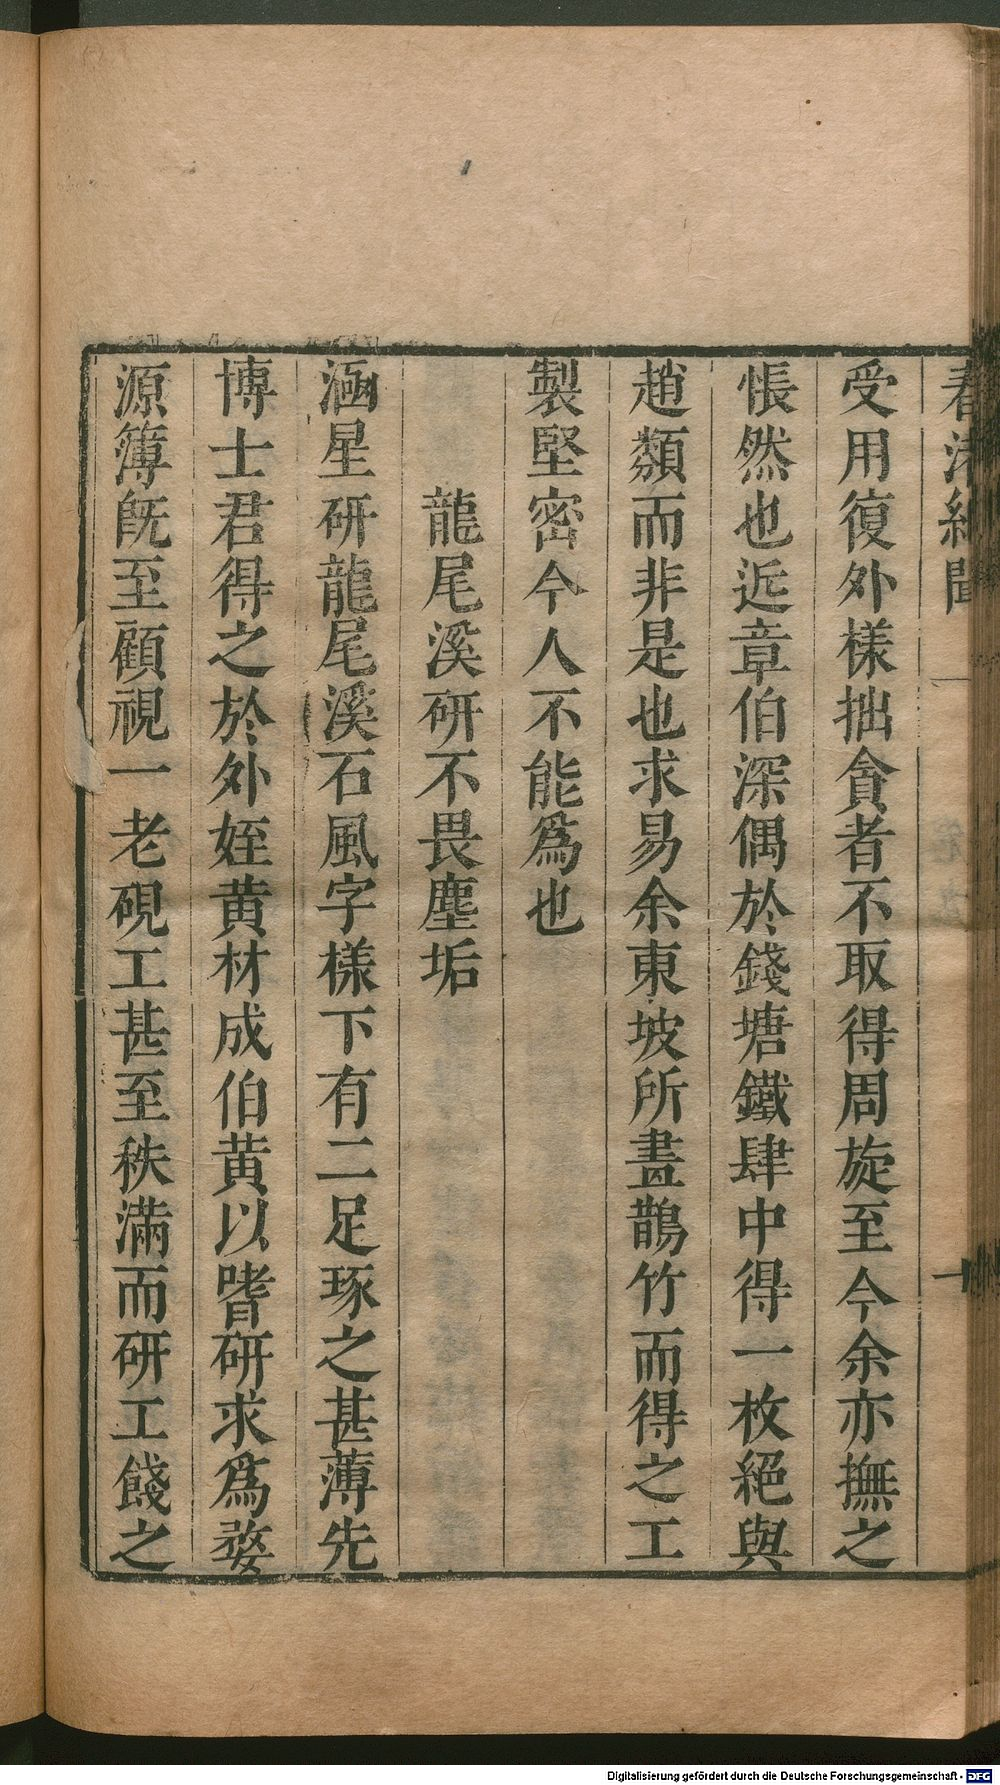 春渚紀聞
受用復外樣拙貪者不取得周旋至今余亦撫之
悵然也近章伯深偶於錢塘鐵肆中得一枚絕與
趙類而非是也求易余東坡所畫鵲竹而得之工
製堅密今人不能為也
龍尾溪研不畏塵垢
涵星研龍尾溪石風字樣下有二足琢之甚薄先
博士君得之於外姪黄材成伯黄以嗜研求為婺
源簿既至顧視一老硯工甚至秩滿而研工餞之
Digitalisierung gefördert durch die Deutsche Forschungsgemeinschaft - DFG